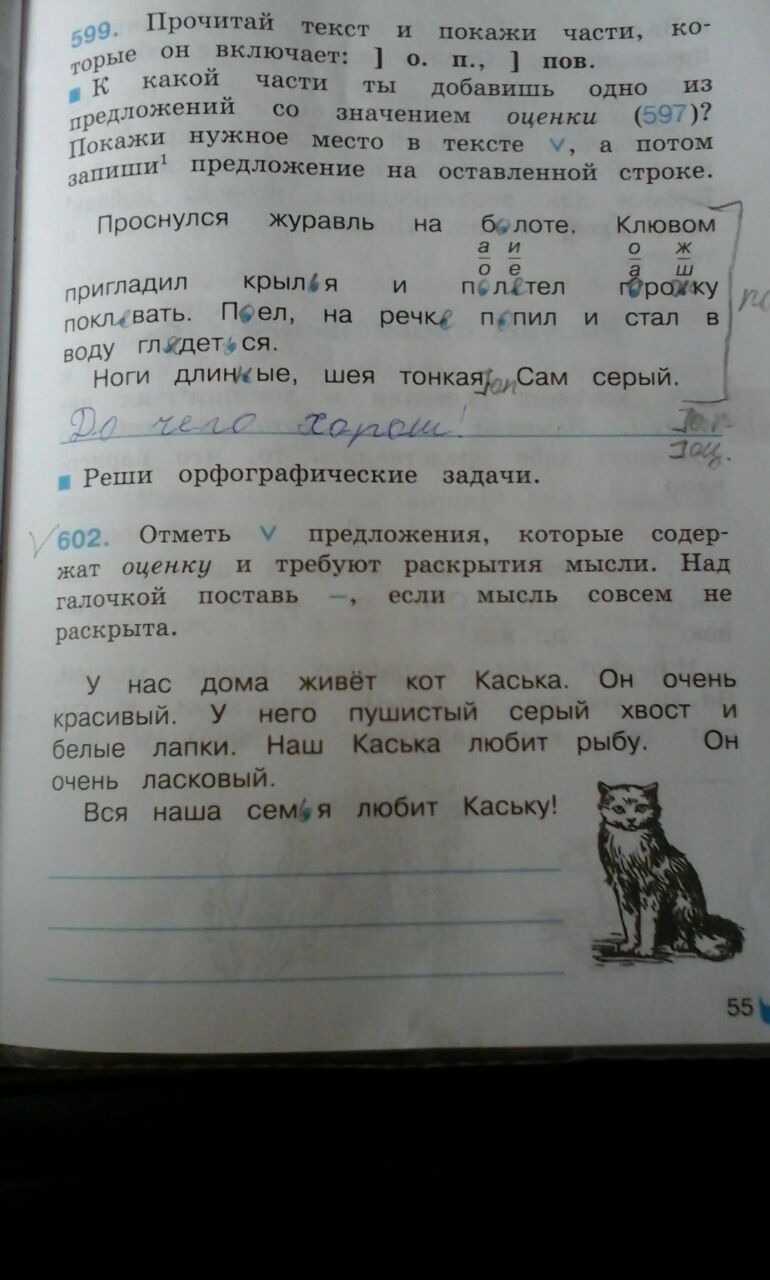 599. Прочитай текст и покажи части, ко-
торые он включает: ] о. п., ] пов.
К какой части ты добавишь одно из
предложений со значением оценки (597)?
Покажи нужное место в тексте ∨, а потом
запиши¹ предложение на оставленной строке.
Проснулся журавль на болоте. Клювом
а и о ж
о е а ш
пригладил крылья и полетел горошку
поклевать. Поел, на речке попил и стал в
воду глядеться.
Ноги длинные, шея тонкая. Сам серый.
До чего хорош!
оц.
Реши орфографические задачи.
∨ 602. Отметь ∨ предложения, которые содер-
жат оценку и требуют раскрытия мысли. Над
галочкой поставь –, если мысль совсем не
раскрыта.
У нас дома живёт кот Каська. Он очень
красивый. У него пушистый серый хвост и
белые лапки. Наш Каська любит рыбу. Он
очень ласковый.
Вся наша семья любит Каську!
55